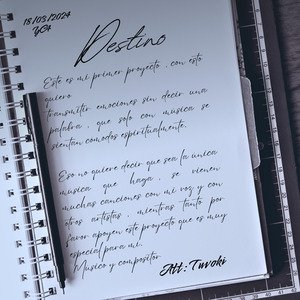 18/03/2024
YG4
Destino
Este es mi primer proyecto, con esto
quiero
transmitir emociones sin decir una
palabra, que solo con musica se
sientan comodos espiritualmente.
Eso no quiere decir que sea la unica
musica que haga, se vienen
muchas canciones con mi voz y con
otros artistas, mientras tanto por
favor apoyen este proyecto que es muy
especial para mi.
Musico y compositor
Att: Twoki